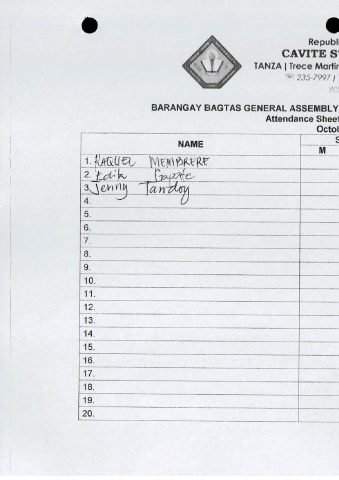 Republi
CAVITE S
TANZA | Trece Martir
☏ 235-7997 |
BARANGAY BAGTAS GENERAL ASSEMBLY
Attendance Sheet
Octo
NAME
S
M
1. RAQUEL MEMBRERE
2. Edik
3. Jenny Tandoy
4.
5.
6.
7.
8.
9.
10.
11.
12.
13.
14.
15.
16.
17.
18.
19.
20.